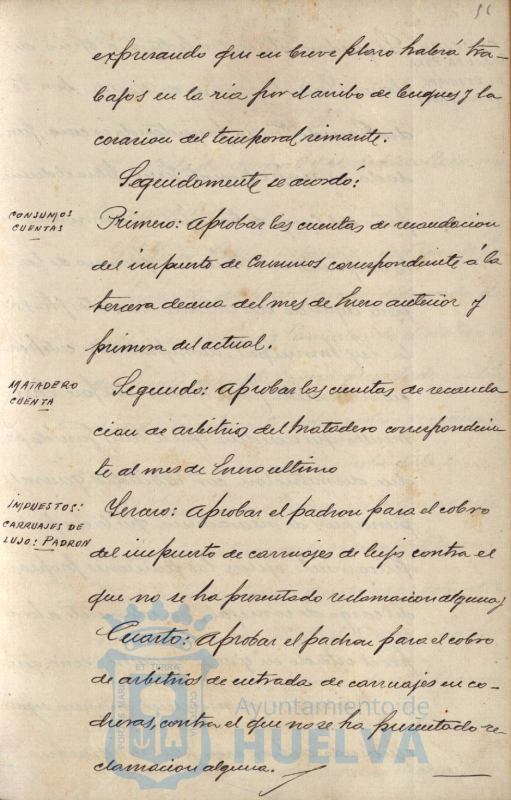 expresando que en breve plazo habrá tra-
bajos en la ria por el arribo de buques y la
cesación del temporal reinante.
Seguidamente se acordó:
CONSUMOS
CUENTAS
Primero: Aprobar las cuentas de recaudacion
del impuesto de Consumos correspondiente á la
tercera decena del mes de Enero anterior y
primera del actual.
MATADERO
CUENTA
Segundo: Aprobar las cuentas de recauda
cion de arbitrios del Matadero correspondien
te al mes de Enero ultimo
IMPUESTOS:
CARRUAJES DE
LUJO: PADRON
Tercero: Aprobar el padron para el cobro
del impuesto de carruajes de lujo contra el
que no se ha presentado reclamacion alguna;
Cuarto: Aprobar el padron para el cobro
de arbitrios de entrada de carruajes en co-
cheras, contra el que no se ha presentado re-
clamacion alguna.
Ayuntamiento de
HUELVA